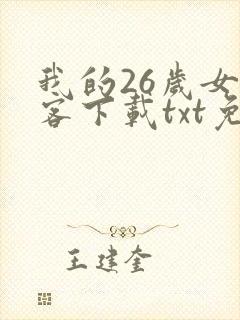 我的26歲女
客下載txt免
王建奎